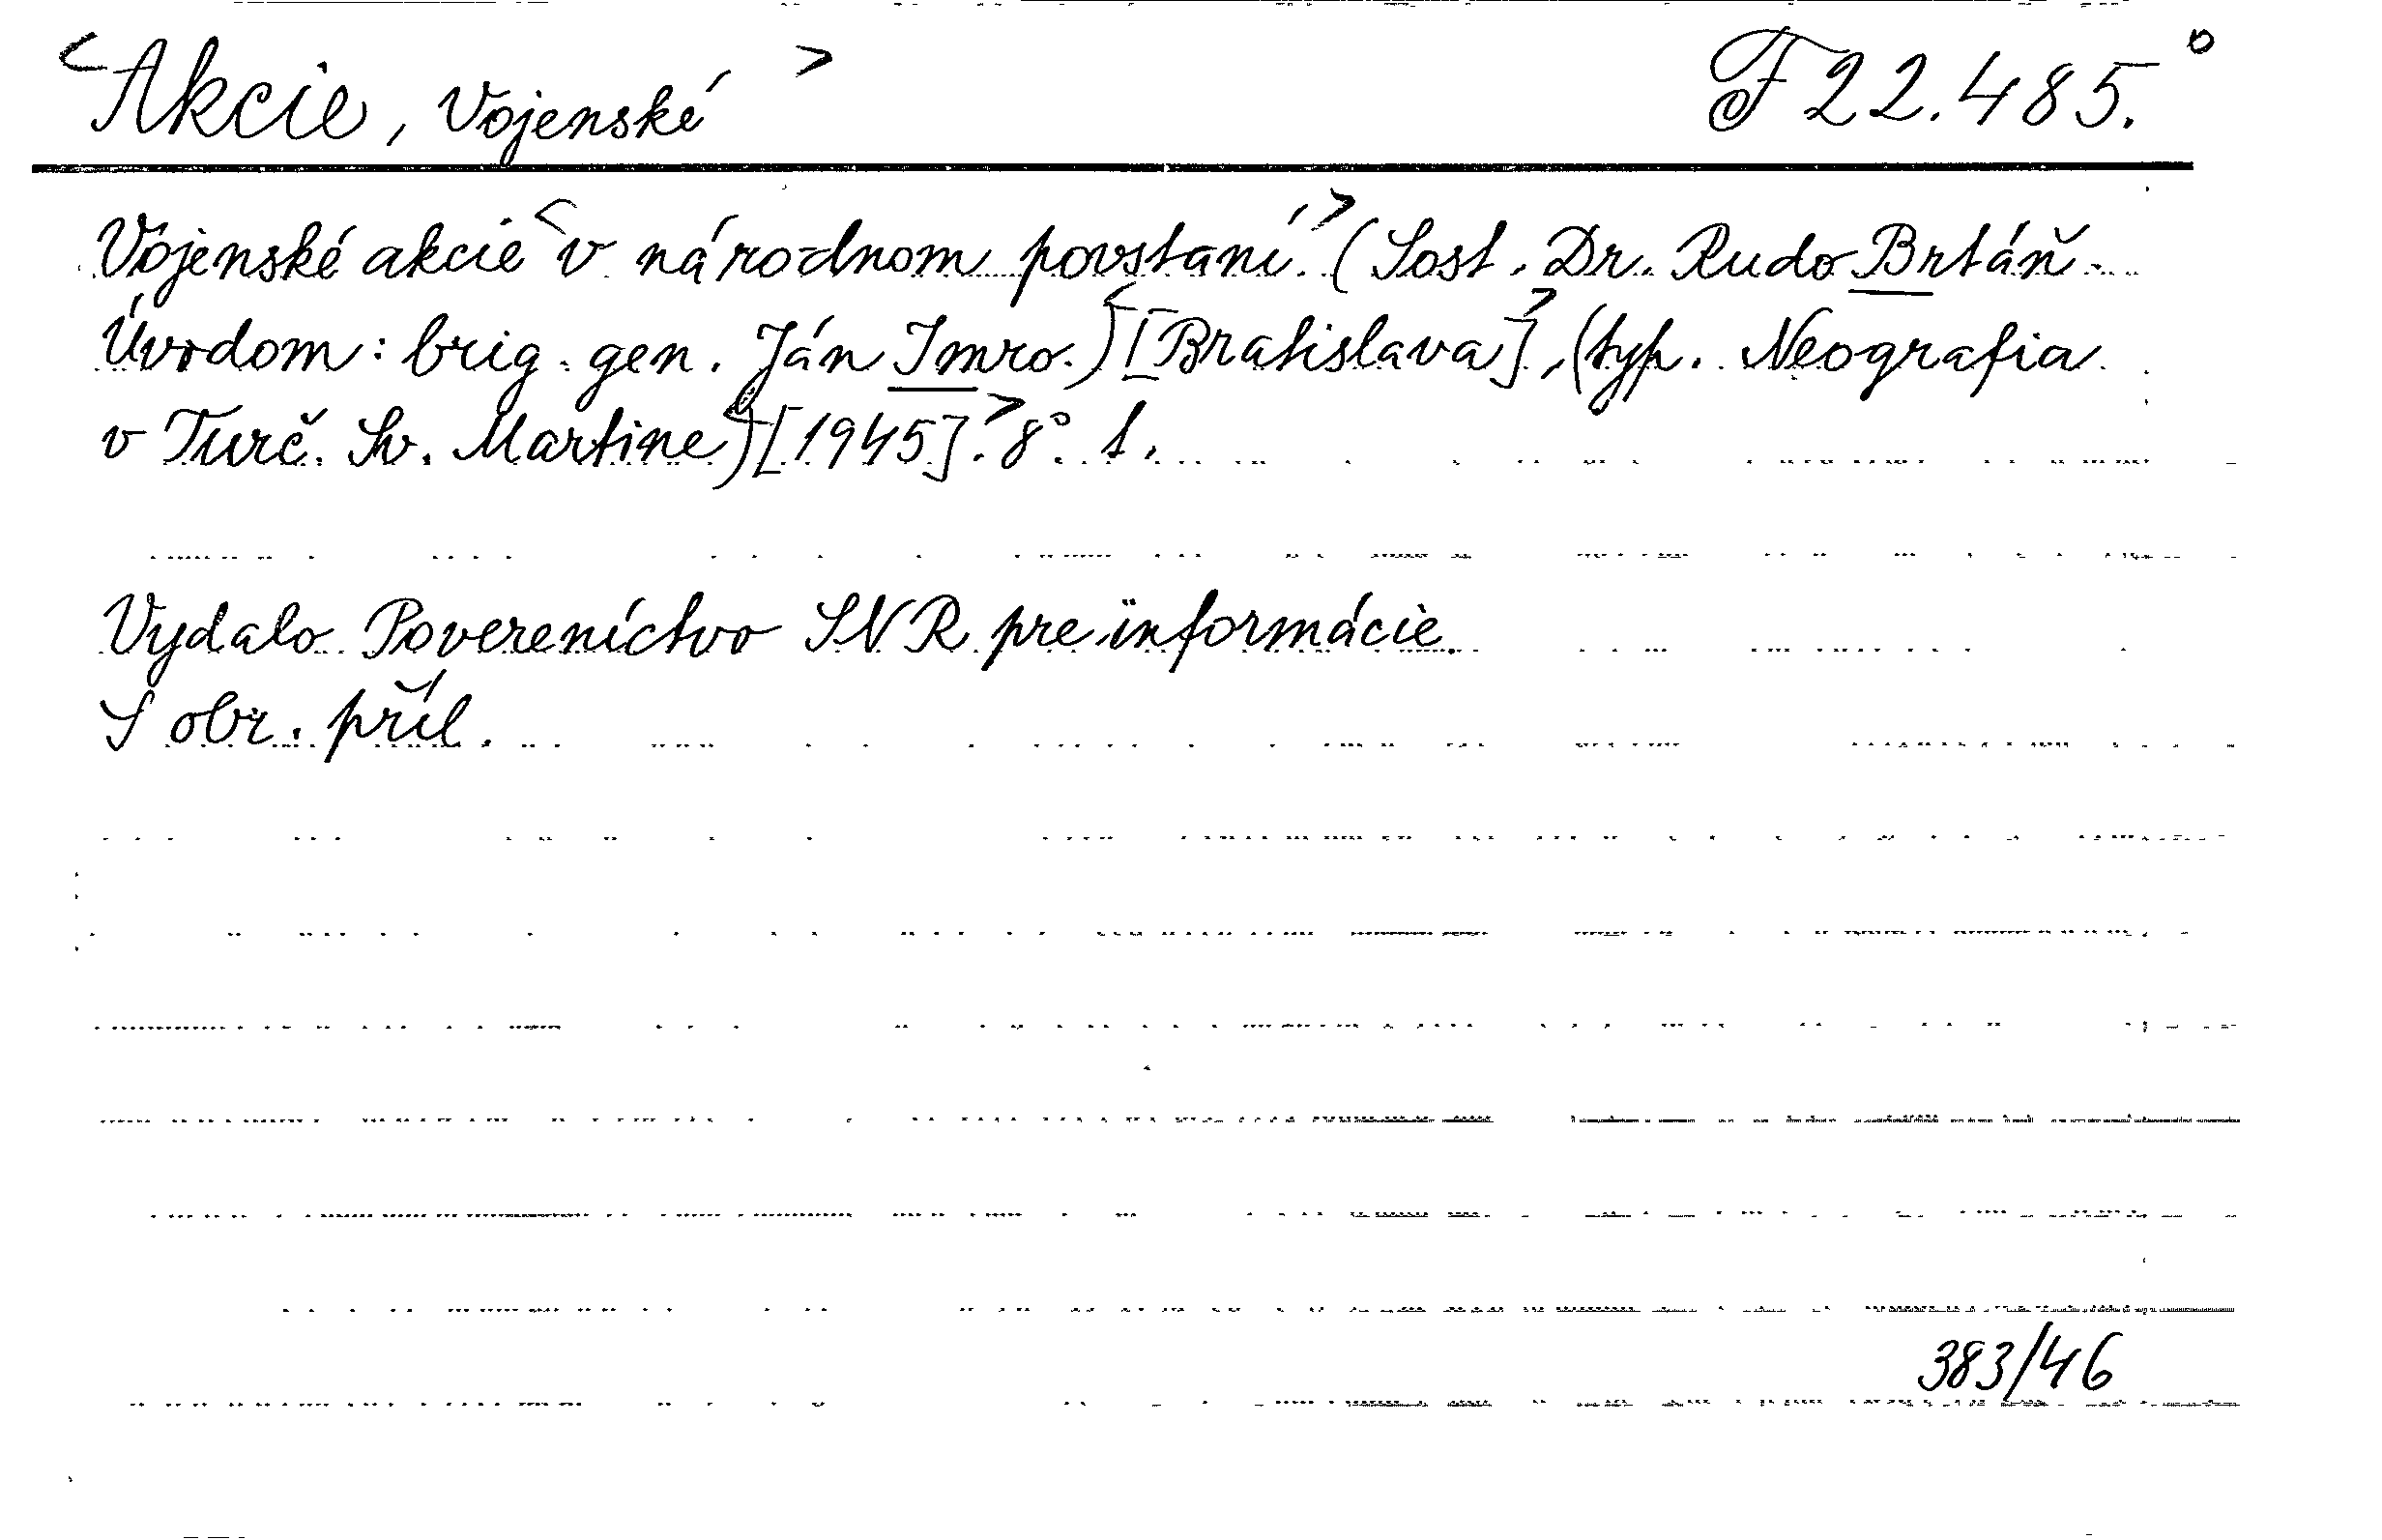 <Akcie, Vojenské> F 22.485.°
Vojenské akcie <v národnom povstaní.> (Sost. Dr. Rudo Brtáň.
Úvodom: brig. gen. Ján Imro.) <[Bratislava]>, (typ. Neografia
v Turč. Sv. Martine) <[1945].> 8°. 1.
Vydalo Povereníctvo SNR pre informácie.
S obr. příl.
383/46